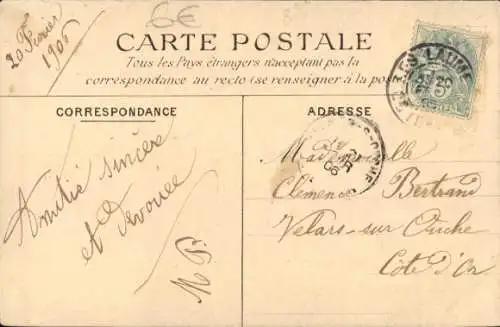 20 Février
1906
6€
CARTE POSTALE
Tous les Pays étrangers n'acceptant pas la
correspondance au recto (se renseigner à la poste
CORRESPONDANCE
ADRESSE
Amitié sincère
et dévouée
M P.
Mademoiselle
Clémence Bertrand
Velars-sur-Ouche
Côte d'Or
LES LAUMES
20
5
06